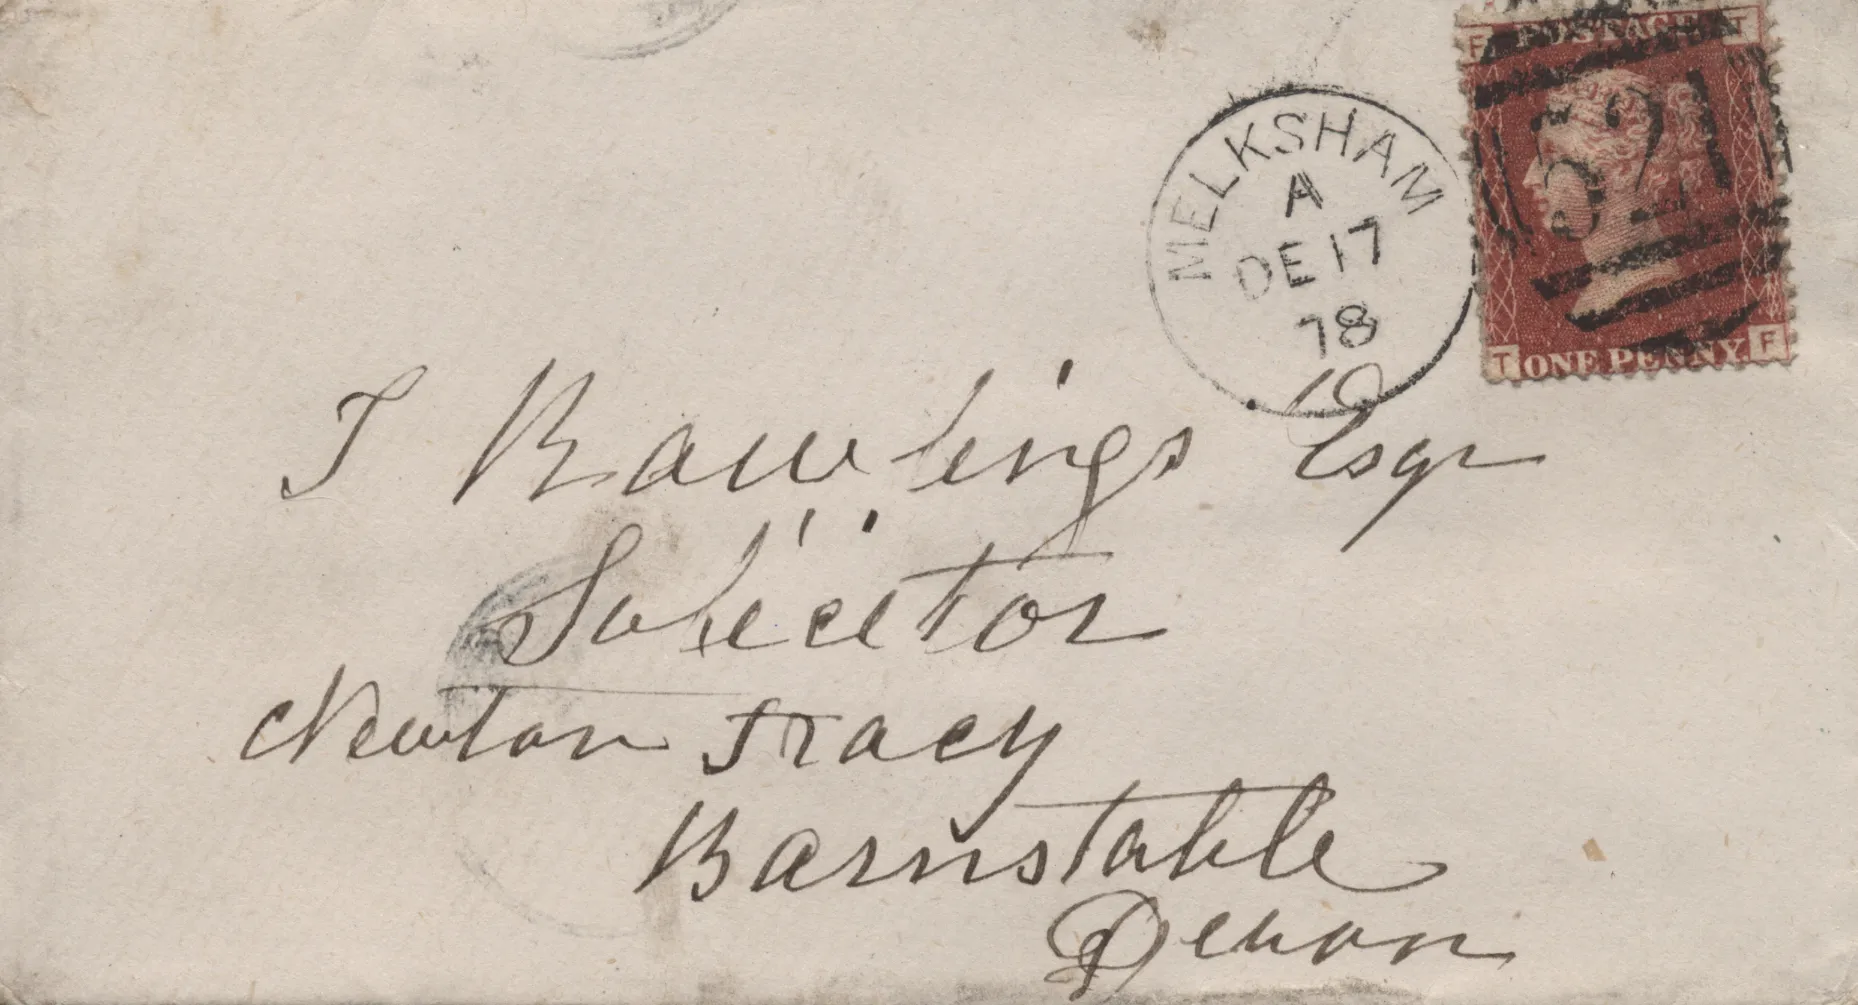 F POSTAGE T
521
T ONE PENNY F
MELKSHAM
A
DE 17
78
T Rawlings Esqr
Solicitor
Newton Tracy
Barnstable
Devon